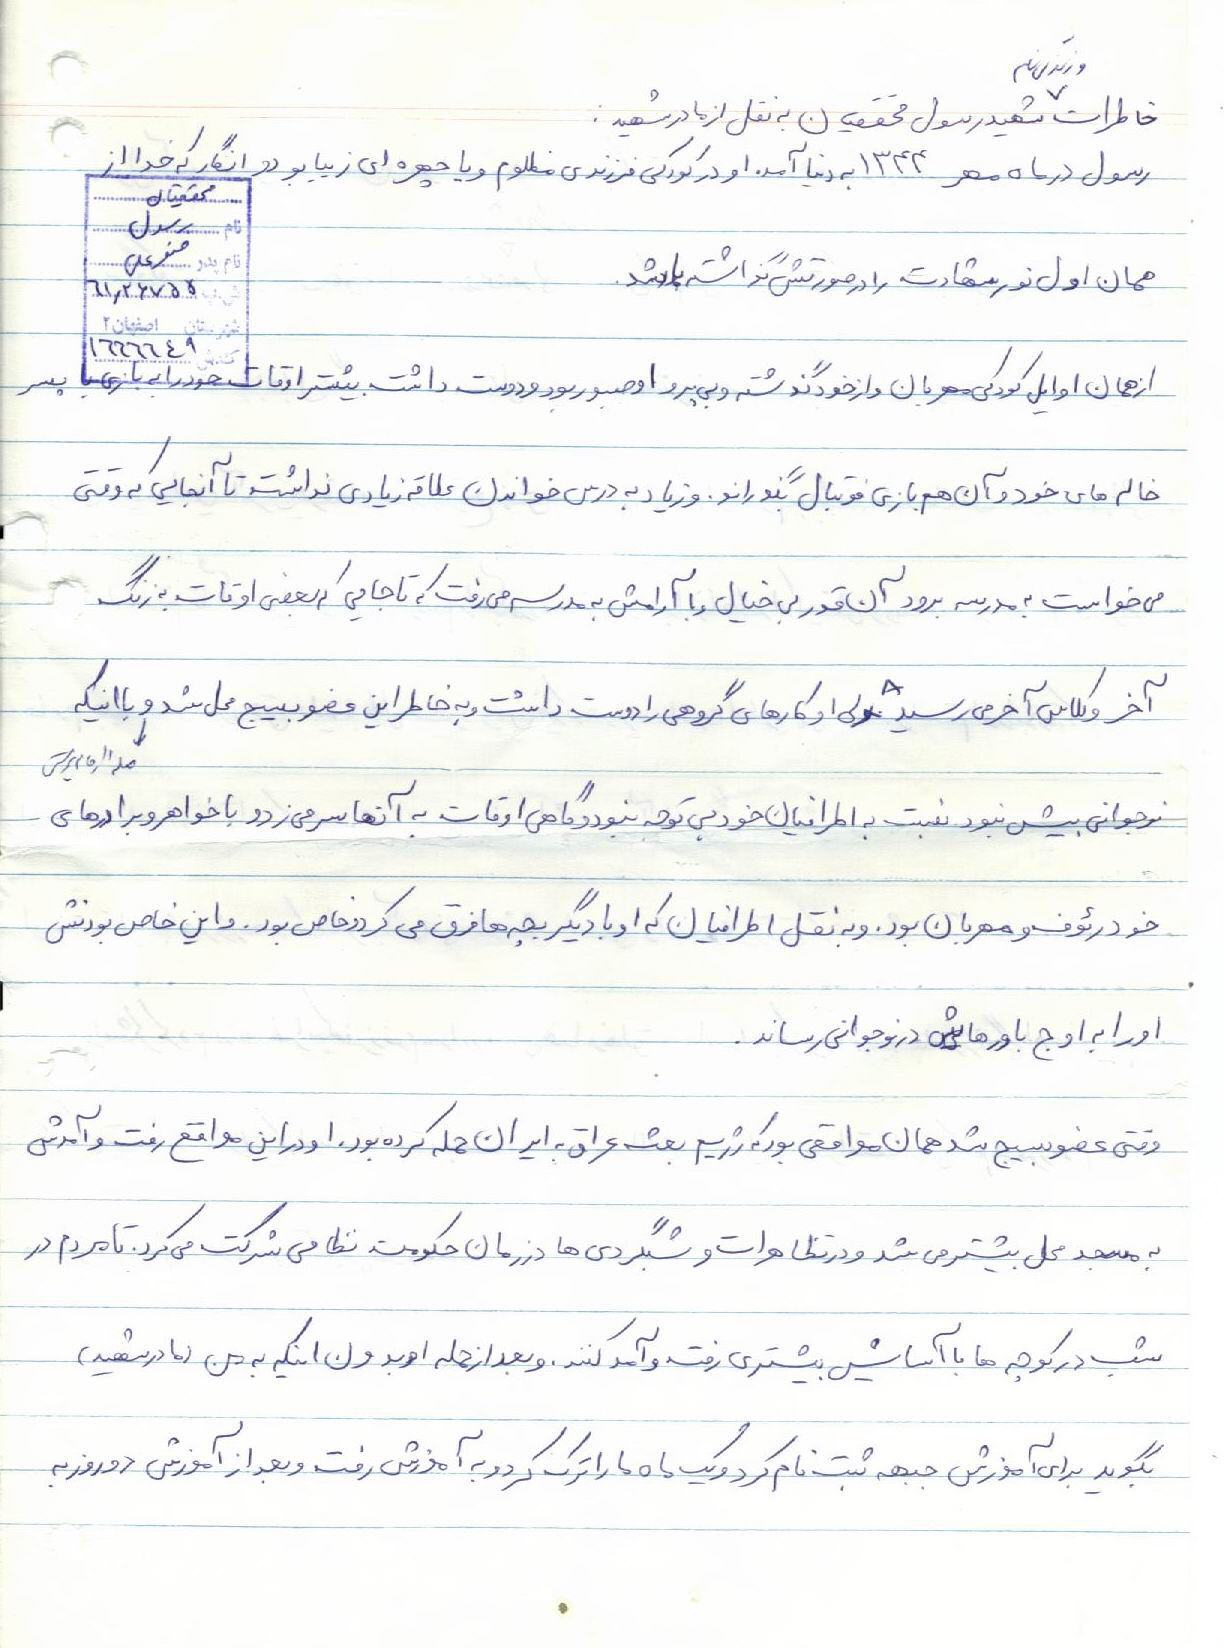 و زندگی نامه
خاطرات شهید رسول محققیان به نقل از مادر شهید :
رسول در ماه مهر ۱۳۴۴ به دنیا آمد. او در کودکی فرزندی مظلوم و با چهره ای زیبا بود و انگار که خدا از
محققیان
نام رسول
نام پدر صفرعلی
ش.پ ٦١٫٢٦٧٥٥
شهرستان اصفهان ۲
کد.ش ١٦٢٦٦٤٩
همان اول نور شهادت را در صورتش گذاشته باشد.
از همان اوایل کودکی مهربان و از خود گذشته و بی پروا و صبور بود و دوست داشت بیشتر اوقات خود را به بازی با پسر
خاله های خود و آن هم بازی فوتبال بگذراند. و زیاد به درس خواندن علاقه زیادی نداشت تا آنجایی که وقتی
می خواست به مدرسه برود آن قدر بی خیال و با آرامش به مدرسه می رفت که تا جایی که بعضی اوقات به زنگ
آخر و کلاس آخر می رسید ولی او کارهای گروهی را دوست داشت و به خاطر این عضو بسیج محل شد و با اینکه
نوجوانی بیش نبود نسبت به اطرافیان خود بی توجه نبود و گاهی اوقات به آنها سر می زد و با خواهر و برادرهای
خود رئوف و مهربان بود. و به نقل اطرافیان که او با دیگر بچه ها فرق می کرد و خاص بود. و این خاص بودنش
او را به اوج باورهایش در نوجوانی رساند.
وقتی عضو بسیج شد همان مواقعی بود که رژیم بعث عراق به ایران حمله کرده بود. او در این مواقع رفت و آمدش
به مسجد محل بیشتر می شد و در تظاهرات و شبگردی ها در زمان حکومت نظامی شرکت می کرد. تا مردم در
شب در کوچه ها با آسایش بیشتری رفت و آمد کنند. و بعد از حمله او بدون اینکه به من (مادر شهید)
بگوید برای آموزش جبهه ثبت نام کرد و یک ماه ما را ترک کرد و به آموزش رفت و بعد از آموزش دو روز به